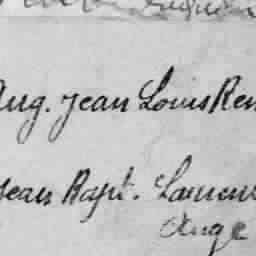 Aug. Jean Louis Ren
Jean Bapt. Laurent
Ange